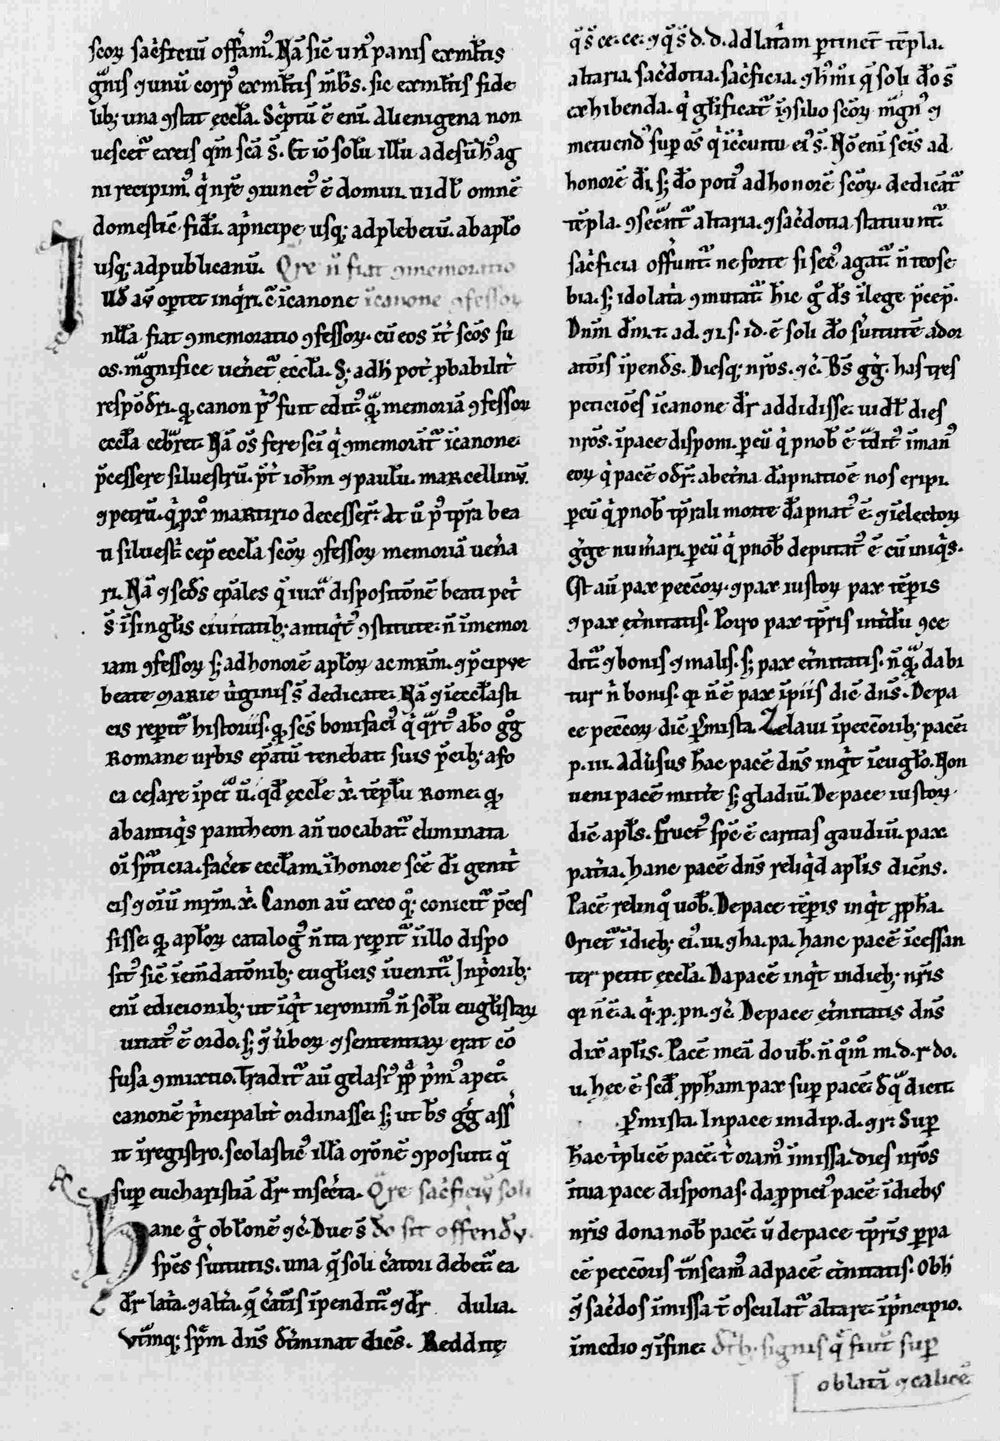 scoꝝ sac̄ficiū offam̄⁹. Nā sic̄ un⁹ panis ex ml̄tis
gnis ⁊ unū corp⁹ ex ml̄tis mb̄s. sic ex ml̄tis fide
lib; una ꝯstat eccl̄a. Sc̄ptū ē eni. Alienigena non
uescet̄ ex eis qm̄ sc̄a s̄. Et iō solū illū ad esū h⁹ ag
ni recipim⁹ q nr̄e ꝯiunct⁹ ē domui. uidl̄ omnē
domesticē fidei. a pncipe usq; ad plebeiū. ab apl̄o
usq; ad publicanū. Qre n̄ fiat ꝯmemoratio
Uđ aū oportet inqri. c̄ i canone i canone ꝯfessoꝝ
nll̄a fiat ꝯmemoratio ꝯfessoꝝ. cū eos int̄ sc̄os su
os. magnifice uenet̄ eccl̄a. S; ad h̄ pot̄ p̄babilit̄
respōđri. q̄ canon p⁹ fuit edit⁹ q̄ memoriā ꝯfessoꝝ
eccl̄a celebret̄. Nā os̄ fere sc̄i q̄ ꝯmemorat̄ i canone
p̄cessere siluestrū. p̄t ioh̄m ⁊ paulū. marcellinū.
⁊ petrū. q̄ px̄ martirio decesser̄. At ū p⁹ tp̄ra bea
ti siluest̄ cep̄ eccl̄a sc̄oꝝ ꝯfessoꝝ memoriā uen̄a
ri. Nā ⁊ sed̄s ep̄ales q̄ iux̄ dispositionē beati pet̄
s̄ i singl̄is ciuitatib; antiqt⁹ ꝯstitute. n̄ i memor
iam ꝯfessoꝝ s; ad honorē apl̄oꝝ ac mr̄m. ⁊ p̄cipue
beate marie uirginis s̄ dedicate. Nā ⁊ i eccl̄asti
cis reperit̄ historiis. q̄ sc̄s bonifaci⁹ q̄ q̄rt⁹ a bo gg̊
Romane urbis ep̄atū tenebat. suis p̄cib; a fo
ca cesare ipet̄ū. qđ eccl̄e x̄. teplū Rome. q̄
ab antiqs pantheon an̄ uocabat̄ eliminata
oī spurcicia. facet eccl̄am. i honore sc̄e đi genit̄
cis ⁊ oīū mr̄m. x̄. Canon aū ex eo q̄ conicit̄ p̄ces
sisse. q̄ apl̄oꝝ catalog⁹ n̄ ita reperit̄ i illo dispo
sit⁹ sic̄ i em̄datōnib; eugl̄icis iuenit̄. In p̄orib;
eni edicionib; ut inqt ieronim⁹ n̄ solū eugl̄istaꝝ
uitat⁹ ē ordo. s; ⁊ ūboꝝ ⁊ sententiaꝝ erat cō
fusa ꝯmixtio. Tradit̄ aū gelasi⁹ pp̄ pm⁹ a pet̄.
canonē p̄ncipalit̄ ordinasse. s; ut b̄s gg̊ ass̄
it i registro. scolastic⁹ ill̄a orōnē ꝯposuit. q̄
sup eucharistiā dr̄ in secreta. Qre sac̄ficiū soli
Hanc g̊ obl̄onē ⁊c̄. Due s̄ đo sit offendū.
sp̄es s̄uitutis. una q̄ soli c̄atori debet̄. ea
dr̄ lat̄ia. ⁊ alt̄a q̄ c̄atis ipendit̄. ⁊ dr̄ dulia.
Utramq; sp̄m dn̄s đt̄minat dices. Reddite
q̄ s̄ ce. ce. ⁊ q̄ s̄ d. d. ad latriam ptinet teppla.
altaria. sac̄dotia. sac̄ficia. ⁊ h⁹mōi q̄ soli đo s̄
exhibenda. q gl̄ificat̄ in ꝯsilio sc̄oꝝ magn⁹ ⁊
metuend⁹ sup os̄ q in c̄cuitu ei⁹ s̄. Nō eni sc̄is ad
honorē đi. s; đo poti⁹ ad honorē sc̄oꝝ. dedicat̄
tēpla. ꝯsec̄nt̄ altaria. ⁊ sac̄dotia statuunt̄.
sac̄ficia offeruntur̄. ne forte si sec⁹ agat̄ n̄ teose
bia. s; idolatria ꝯmutat̄. h̄ic g̊ ds̄ i lege p̄cep̄.
Dnm đm. t. ad. ⁊ i. s. id. ē soli đo s̄uitutē ador
atōis ipendēs. Diesq; nr̄os. ⁊c̄. B̄s gg̊. has tres
peticiōes i canone dr̄ addidisse. uidl̄ dies
nr̄os. i pace disponi. p eū q p nob̄ ē t̄dit⁹ i man⁹
eoꝝ q pacē odr̄. ab et̄na dāpnatiōe nos eripi.
p eū q p nob̄ tp̄rali morte dāpnat⁹ ē. ⁊ i electoꝝ
g̊ge numerari. p eū q p nob̄ deputat⁹ ē cū iniqs.
Est aū pax pecc̄oꝝ. ⁊ pax iustoꝝ pax tēpis
⁊ pax et̄nitatis. Porro pax tp̄ris int̄dū ⁊ ce
dit̄ ⁊ bonis ⁊ malis. s; pax et̄nitatis. n̄q̄ dabi
tur n̄ bonis. q̄ n̄ ē pax ipiis dic̄ dn̄s. De pa
ce pecc̄oꝝ dic̄ p̄mista. Zelaui i pecc̄orib; pacē.
p. ui. Adūsus hac pacē dn̄s inqt i eugl̄o. Non
ueni pacē mitte s; gladiū. De pace iustoꝝ
dic̄ apl̄s. Fruct⁹ sp̄c ē caritas gaudiū. pax
patia. hanc pacē dn̄s reliqd apl̄is dicēs.
Pacē relinq̄ uob̄. De pace tēpis inqt pph̄a.
Oriet̄ i dieb; ei⁹. iu. ⁊ ha. pa. hanc pacē i cessan
ter petit eccl̄a. Da pacē inqt in dieb; nr̄is
q̄ n̄ ē a. q. p. pn. ⁊c̄. De pace et̄nitatis dn̄s
dix̄ apl̄is. Pacē meā do ub̄. n̄ qm̄ m. d. r do.
u. hec ē sc̄đ pph̄am pax sup pacē. đ q̄ dicit
p̄mista. In pace in idip. d. ⁊ r. Sup
hac t̄plicē pacē. t̄ oram⁹ i missa. dies nr̄os
i tua pace disponas. da ppici⁹ pacē i dieb;
nr̄is dona nob̄ pacē. ū de pace tp̄ris p pa
cē pecc̄oris t̄nseam⁹ ad pacē et̄nitatis. Ob h̄
⁊ sac̄dos i missa t̄ osculat̄ altare. i p̄ncipio.
i medio ⁊ i fine. đ t̄b; signis q̄ fiūt sup
oblatā ⁊ calicē